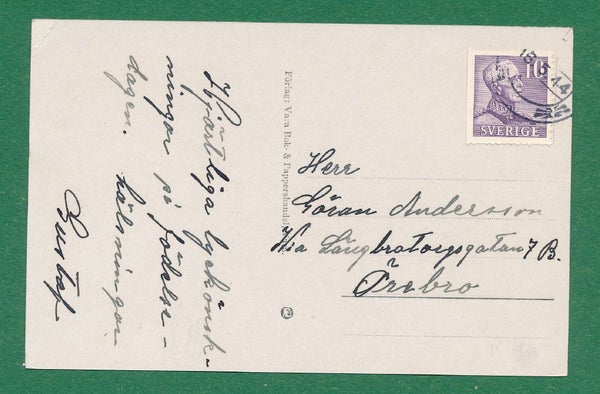 Hjärtliga lyckönsk-
ningar på födelse-
dagen. hälsningar
Gustaf
Förlag: Vara Bok- & Pappershandel
10
SVERIGE
18 5 44
Herr
Göran Andersson
Via Längbrotorgsgatan 7 B.
Örebro